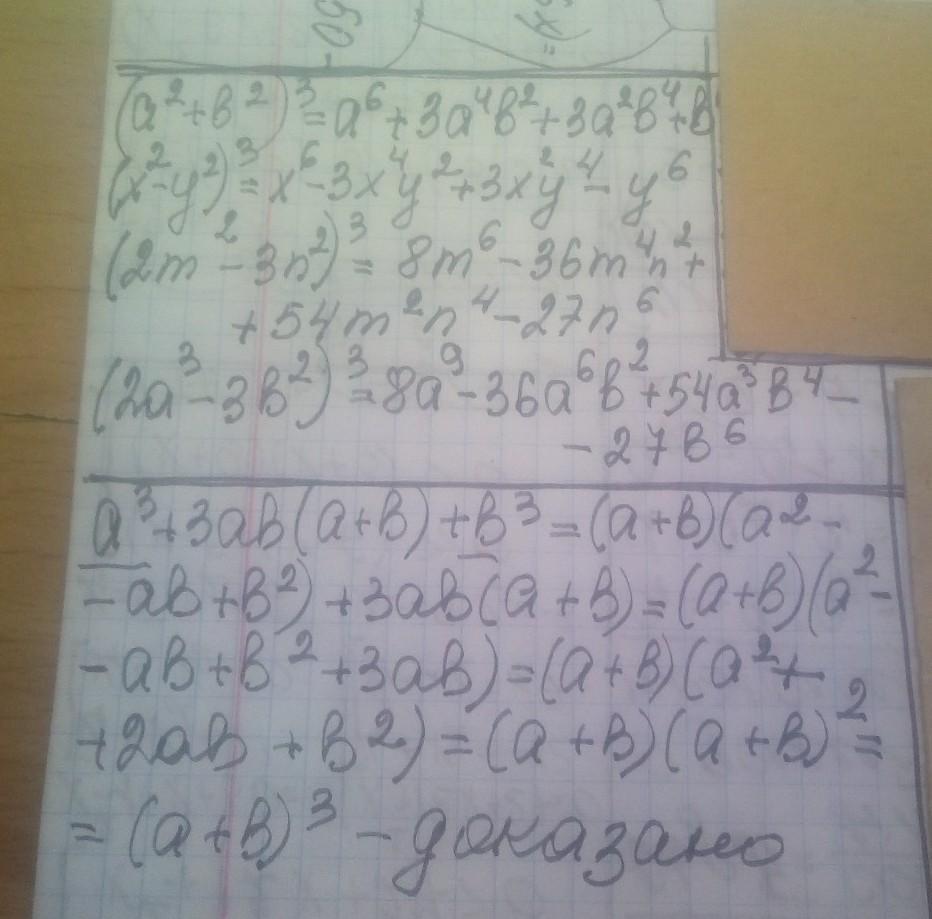 (a²+b²)³=a⁶+3a⁴b²+3a²b⁴+b
(x²-y²)³=x⁶-3x⁴y²+3xy²⁴-y⁶
(2m²-3n²)³=8m⁶-36m⁴n²+
+54m²n⁴-27n⁶
(2a³-3b²)³=8a⁹-36a⁶b²+54a³b⁴-
-27b⁶
a³+3ab(a+b)+b³=(a+b)(a²-
-ab+b²)+3ab(a+b)=(a+b)(a²-
-ab+b²+3ab)=(a+b)(a²+
+2ab+b²)=(a+b)(a+b)²=
=(a+b)³-доказано